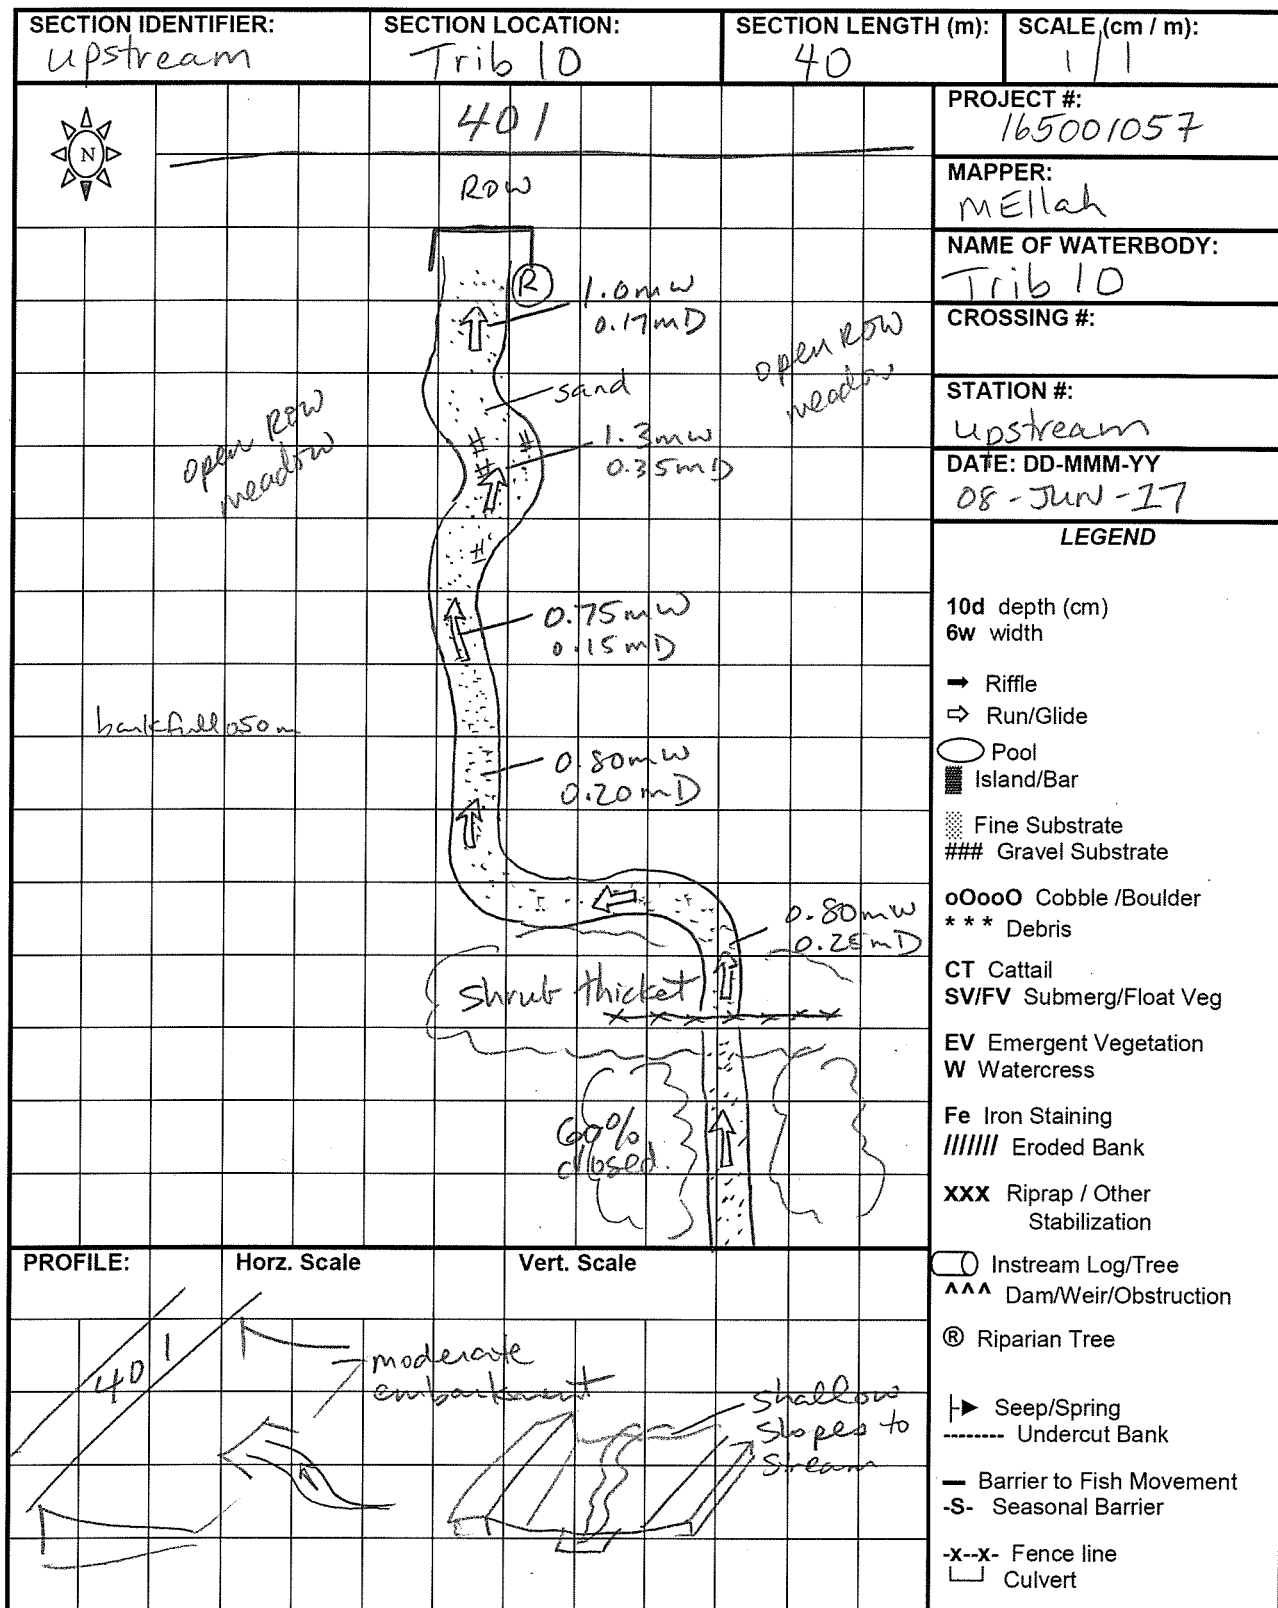 SECTION IDENTIFIER:
upstream
SECTION LOCATION:
Trib 10
SECTION LENGTH (m):
40
SCALE (cm / m):
1/1
N
401
ROW
R
1.0mW
0.17mD
open ROW
meadow
sand
open ROW
meadow
1.3mW
0.35mD
0.75mW
0.15mD
bankfull
0.80mW
0.20mD
0.80mW
0.25mD
shrub thicket
60%
closed.
PROJECT #:
165001057
MAPPER:
MEllah
NAME OF WATERBODY:
Trib 10
CROSSING #:
STATION #:
upstream
DATE: DD-MMM-YY
08-JUN-17
LEGEND
10d depth (cm)
6w width
Riffle
Run/Glide
Pool
Island/Bar
Fine Substrate
### Gravel Substrate
oOooO Cobble /Boulder
* * * Debris
CT Cattail
SV/FV Submerg/Float Veg
EV Emergent Vegetation
W Watercress
Fe Iron Staining
/////// Eroded Bank
XXX Riprap / Other
Stabilization
Instream Log/Tree
^^^ Dam/Weir/Obstruction
® Riparian Tree
Seep/Spring
-------- Undercut Bank
Barrier to Fish Movement
-S- Seasonal Barrier
-x--x- Fence line
Culvert
PROFILE:
Horz. Scale
Vert. Scale
401
moderate
embankment
shallow
slopes to
stream